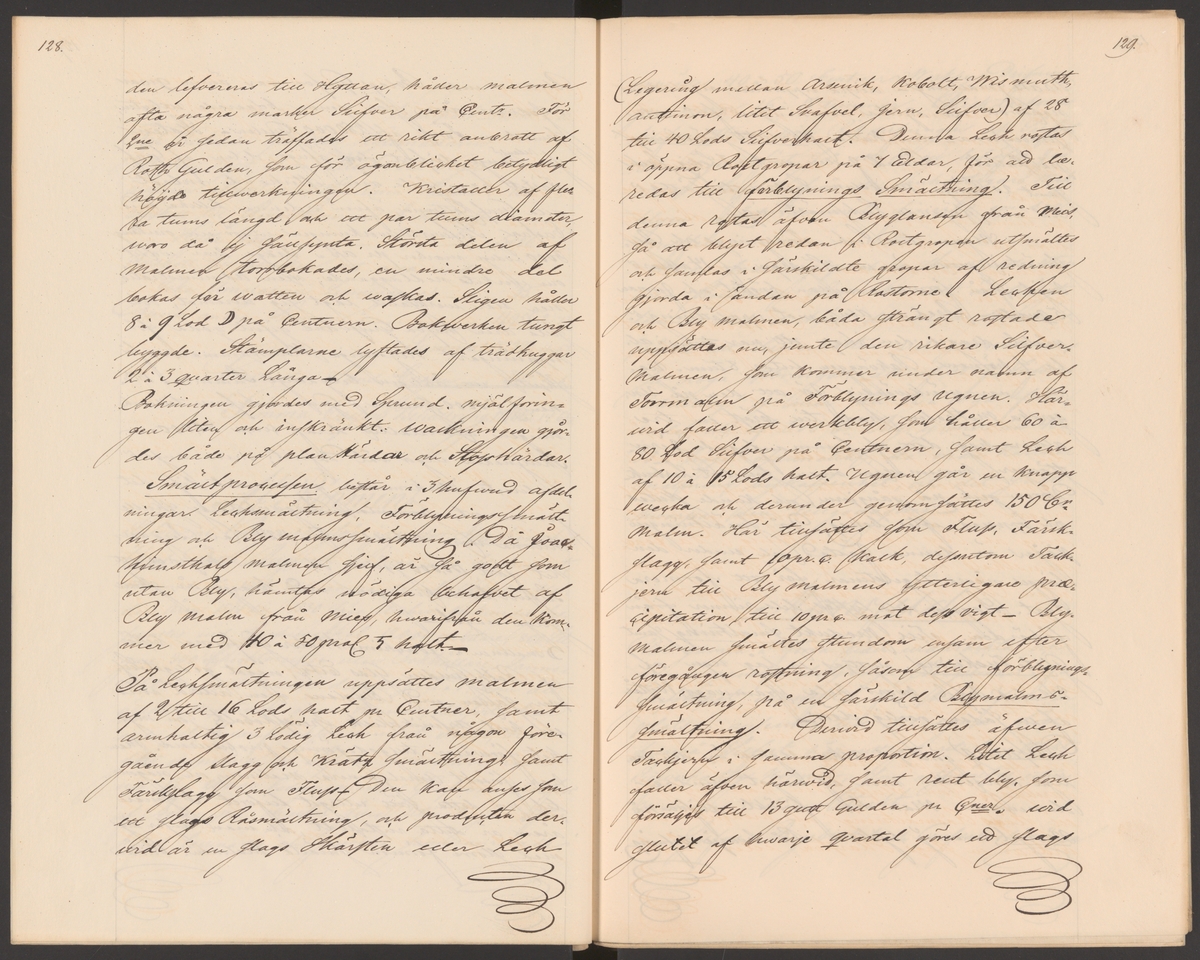 128.
den lefvereras till Hyttan, håller malmen
ofta några marker Silfver på Cent:. För
2ne år sedan träffades ett rikt anbrott af
Roth Gülden, som för ögonblicket betydligt
höjde tillwerkningen. Kristaller af fle-
ra tums längd och ett par tums diameter,
woro då ej sällsynta. Största delen af
malmen torrbokades, en mindre del
bokas för watten och waskas. Sligen håller
8 à 9 Lod på Centnern. Bokwerken tungt
byggde. Stämplarne lyftades af trädhuggar
2 à 3 quarter långa—
Bokningen gjordes med Sprund. mjölförin-
gen liten och inskränkt: waskningen gjör-
des både på planhärdar och Stosshärdar.
Smältprocessen består i 3 hufwud afdel-
ningar Lechsmältning, Förblyningssmält-
ning och Blymalmssmältning. Då Joac-
himsthals malmen sjelf, är så godt som
utan Bly, hämtas nödiga behofvet af
Bly malm från Mies, hwarifrån den kom-
mer med 40 à 50 proC halt—
På Lechsmältningen uppsättes malmen
af 2 till 16 Lods halt pr Centner, samt
armhaltig 3 Lödig Lech från någon före-
gående slagg och Krätz smältning, samt
Färskslagg som Fluss. Den kan anses som
ett slags Råsmältning, och produkten der-
wid är en slags Skärsten eller Lech
129.
(Legering mellan Arsenik, Kobolt, Wismuth,
antimon, litet Svafvel, jern, Silfver) af 28
till 40 Lods Silfverhalt. Denna Lech rostas
i öppna Rostgropar på 7 eldar, för att be-
redas till förblynings Smältning. Till
denna rostas äfven Blyglansen från Mies,
så att blyet redan i Rostgropen utsmältes
och samlas i särskildte gropar af redning
gjorda i sandan på Rosterne. Lechen
och Bly malmen, båda strängt rostade
uppsättes nu, jemte den rikare Silfver-
malmen, som kommer under namn af
Torrmalm på Förblynings ugnen. Här-
wid faller ett werkbly, som håller 60 à
80 Lod Silfver på Centnern, samt Lech
af 10 à 15 Lods halt. Ugnen går en knapp
wecka och derunder genomsättes 150 Cnr
malm. Här tillsättes som Fluss, Färsk-
slagg, samt 10 pr. c. Kalk, dessutom Tack-
jern till Bly malmens ytterligare præ-
cipitation till 10 pr c. mot dess vigt— Bly-
malmen smältes stundom ensam efter
föregången rostning, såsom till förblynings-
smältning, på en särskild Blymalms-
smältning. Derwid tillsättes äfwen
Tackjern i samma proportion. Litet Lech
faller äfven härwid, samt rent bly, som
försäljes till 13 gutt Gulden pr Cner. wid
slutet af hwarje quartal göres ett slags